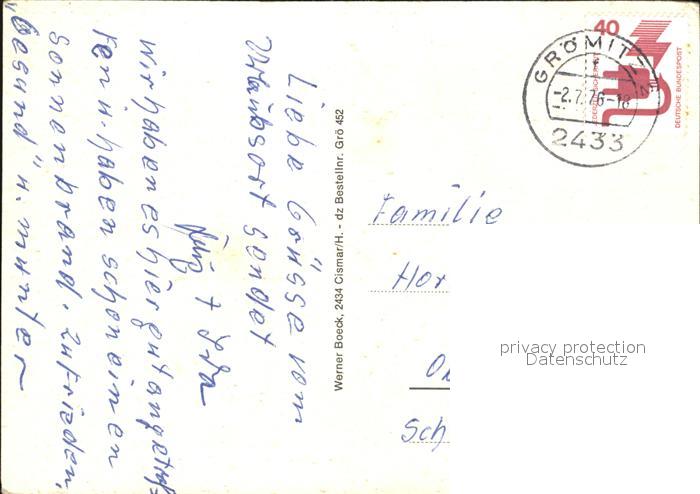 Liebe Grüsse vom
Urlaubsort sendet
+ Ida
Wir haben es hier gut angetrof=
fen u. haben schon einen
Sonnenbrand. Zufrieden,
"Gesund" u. munter
Werner Boeck, 2434 Cismar/H. - dz Bestellnr. Grö 452
40
DEUTSCHE BUNDESPOST
GRÖMITZ
-2.7.76-18
2433
Familie
Hor
Sch
privacy protection
Datenschutz